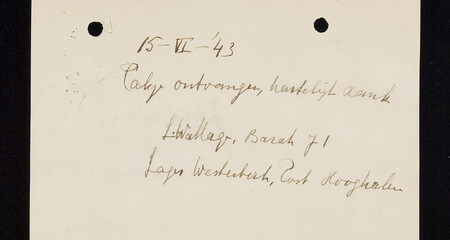 15-VI-'43
Pakje ontvangen, hartelijk dank
S. Wallage, Barak 71
Lager Westerbork, Post Hooghalen